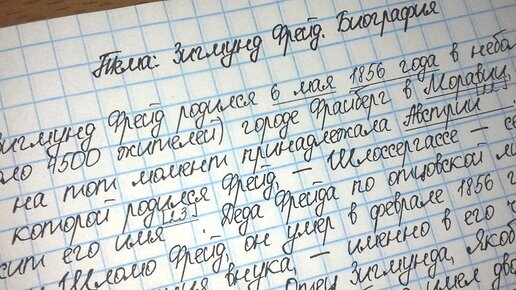 Тема: Зигмунд Фрейд. Биография
Зигмунд Фрейд родился 6 мая 1856 года в небол
оло 4500 жителей) городе Фрайберг в Моравии,
на тот момент принадлежала Австрии
которой родился Фрейд, – Шлоссергассе – се
сит его имя[13]. Деда Фрейда по отцовской ли
Шломо Фрейд, он умер в феврале 1856 г
внука, – именно в его ч
Отец Зигмунда, Якоб